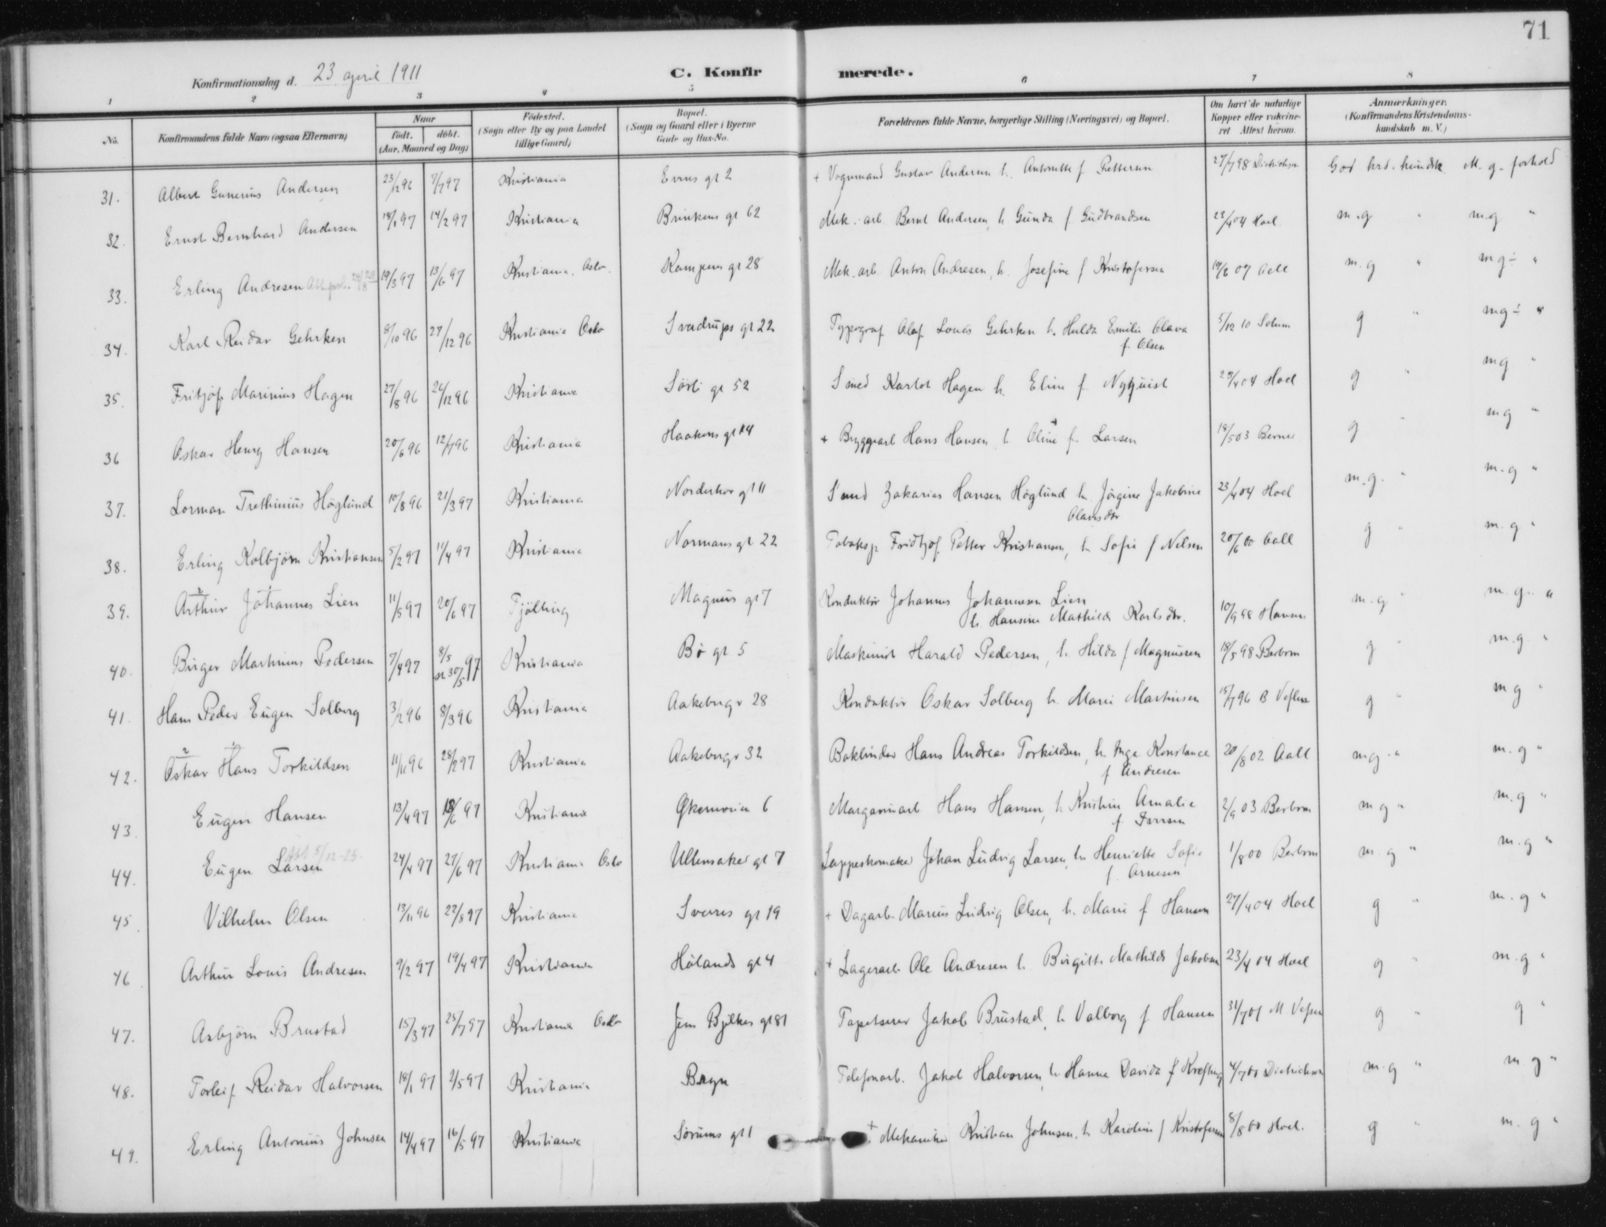 71
Konfirmationsdag d. 23 april 1911 C. Konfirmerede.
1 2 3 4 5 6 7 8
No. Konfirmandens fulde Navn (ogsaa Efternavn) Naar født. døbt. (Aar, Maaned og Dag) Fødested. (Sogn eller By og paa Landet tillige Gaard) Bopæl. (Sogn og Gaard eller i Byerne Gade og Hus-No. Forældrenes fulde Navne, borgerlige Stilling (Næringsvei) og Bopæl. Om havt de naturlige Kopper eller vaksineret Attest herom. Anmærkninger. (Konfirmandens Kristendomskundskab m. V.)
31. Albert Gunerius Andersen 23/2 96 7/7 97 Kristiania gt 2 + Vognmand Gustav Andersen h. Antonette f Pettersen 27/7 98 Dietrichson God krd. kundsk. M. g. forhold
32. Ernst Bernhard Andersen 18/1 97 14/2 97 Kristiania Brinkens gt 62 Mek. arb Bernt Andersen, h Gunda f Gudbrandsen 23/4 04 Hoel m.g " m.g "
33. Erling Andresen 19/3 97 13/6 97 Kristiania. Oslo. Kampens gt 28 Mek. arb. Anton Andresen, h. Josefine f Kristofersen 19/6 07 Aall m.g " mg÷ "
34. Karl Reidar Gehrken 8/10 96 27/12 96 Kristiania Oslo Sverdrups gt 22 Typograf Olaf Louis Gehrken h. Hulda Emilie Olava f. Olsen 5/12 10 Solum g " mg÷ "
35. Fritjof Marinius Hagen 27/8 96 26/12 96 Kristiania Sørli gt 52 Smed Karlot Hagen h. Eline f. Nyquist 29/4 04 Hoel g mg "
36 Oskar Henry Hansen 20/6 96 12/7 96 Kristiania Haakons gt 14 + Bryggearb Hans Hansen h Oline f. Larsen 18/5 03 Berner g " mg "
37. Lorman Trethinius Høglund 10/8 96 21/3 97 Kristiania Norderhov gt 11 Smed Zakarias Hansen Høglund h Jørgine Jakobine Olausdtr 23/4 04 Hoel m.g. " m.g "
38. Erling Kolbjørn Kristiansen 5/2 97 11/4 97 Kristiania Normans gt 22 Tobaksp Fridtjof Petter Kristiansen, h Sofie f Nilsen 20/6 00 Aall g " m.g "
39. Arthur Johannes Lien 11/5 97 20/6 97 Tjölling Magnus gt 7 Konduktør Johannes Johannesen Lien h. Hansine Mathilde Karlsdtr. 10/9 98 Hansen m.g " m.g. "
40. Birger Martinius Pedersen 7/4 97 30/5 97 Kristiania Bö gt 5 Maskinist Harald Pedersen, h. Hilda f Magnussen 18/5 98 Berbom g " m.g. "
41. Hans Peder Eugen Solberg 3/2 96 8/3 96 Kristiania Aakebergv 28 Konduktør Oskar Solberg h. Marie Martinsen 15/7 96 g " mg "
42. Oskar Hans Torkildsen 11/11 96 28/2 97 Kristiania Aakebergv 32 Bokbinder Hans Andreas Torkildsen, h Inga Konstance f Andresen 20/8 02 Aall mg " m.g "
43. Eugen Hansen 13/4 97 18/6 97 Kristiania Økernveien 6 Margarinarb Hans Hansen, h Kristine Amalie f 2/9 03 Berbom m g " m.g "
44. Eugen Larsen 5/12-25. 24/4 97 27/6 97 Kristiania Oslo Ullensaker gt 7 Lappeskomaker Johan Ludvig Larsen, h Henriette Sofie f. Arnesen 1/8 00 Berbom m.g " m.g "
45. Vilhelm Olsen 13/11 96 23/5 97 Kristiania Sverres gt 19 + Dagarb. Marius Ludvig Olsen, h. Marie f Hansen 27/4 04 Hoel g " m.g "
46. Arthur Louis Andresen 9/2 97 19/4 97 Kristiania Hølands gt 4 + Lagerarb. Ole Andresen h. Birgitte Mathilde Jakobsen 23/4 04 Hoel g " m.g "
47. Asbjørn Brustad 15/3 97 25/7 97 Kristiania Oslo Jens Bjelkes gt 81 Tapetserer Jakob Brustad, h Valborg f Hansen 31/7 01 g " g "
48. Torleif Reidar Halvorsen 10/1 97 2/5 97 Kristiania Telefonarb. Jakob Halvorsen, h Hanna Davida f Krefting 4/7 00 Dietrichson m.g " m g "
49. Erling Antonius Johnsen 14/4 97 16/5 97 Kristiania Sørums gt 1 + Mekaniker Kristian Johnsen. h Karoline f Kristofersen 8/8 00 Hoel. g " m.g "